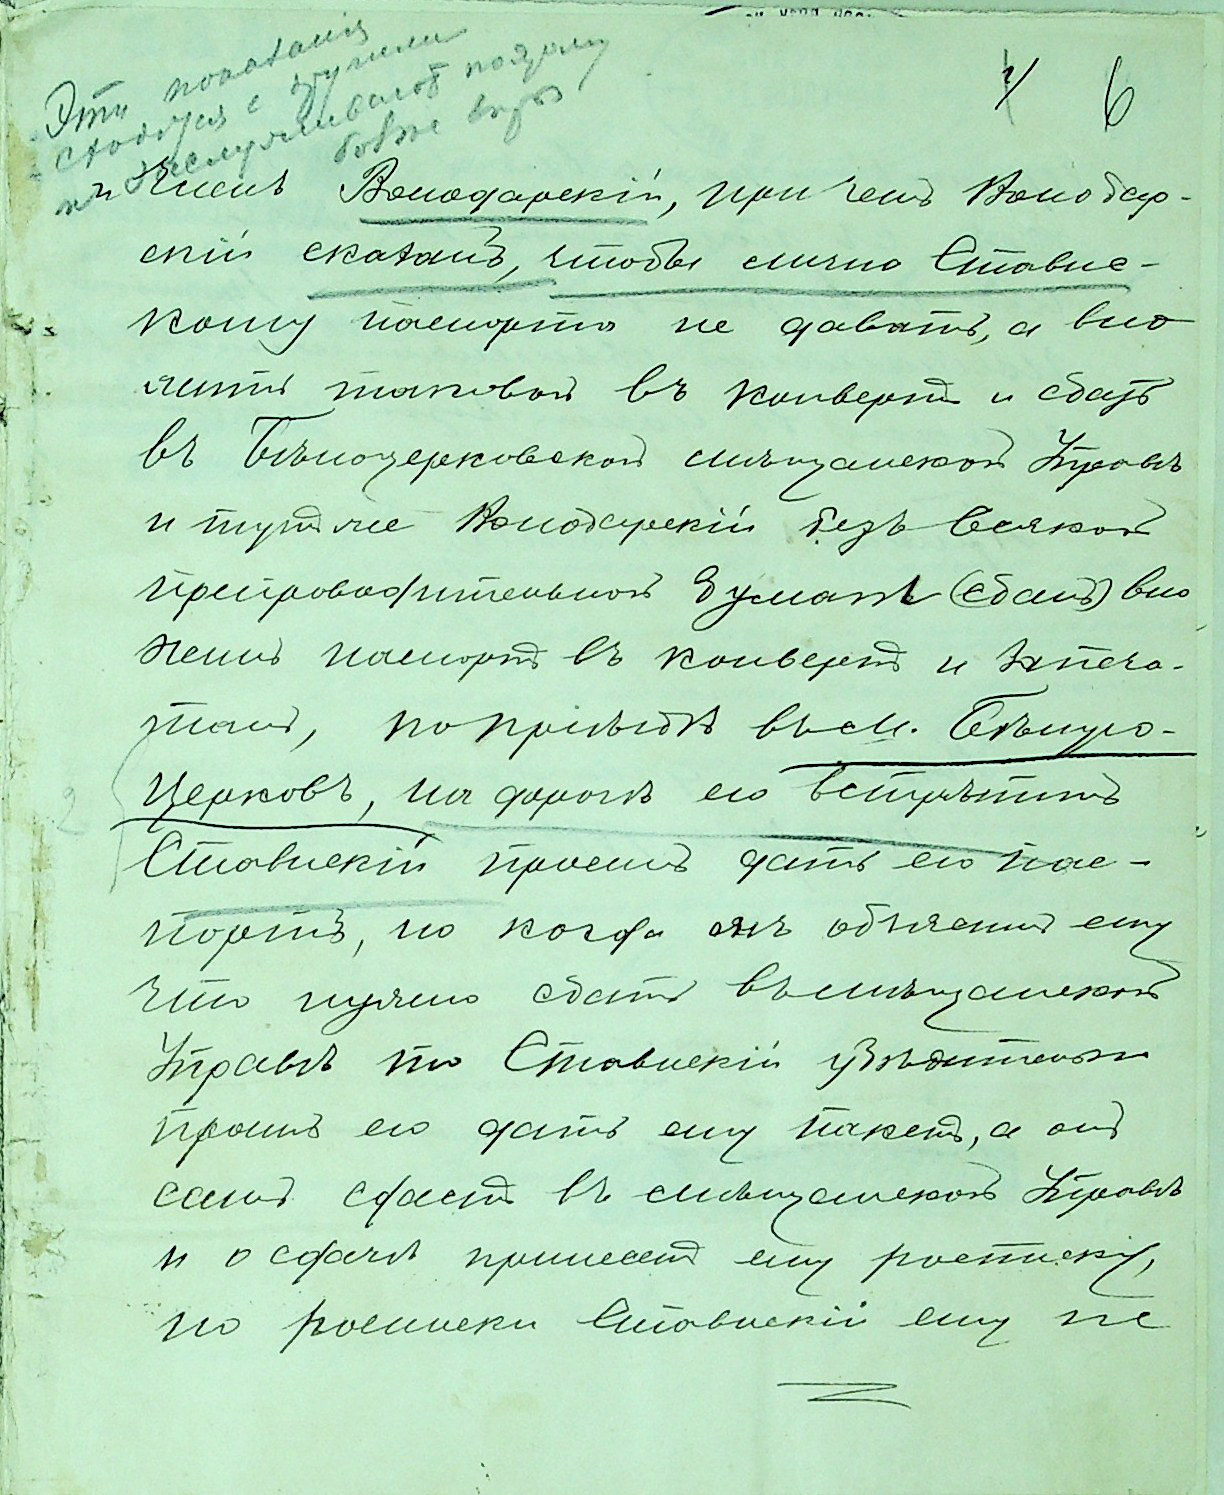 6
Эти показанія
сходятся с другими
и заслуживаютъ по этому
болѣе вѣры
и Членъ Володарскій, при чемъ Володар-
скій сказалъ, чтобы лично Ставис-
кому паспорта не давать, а вло
жить таковой въ конвертъ и сдать
въ Бѣлоцерковской мѣщанской Управѣ
и тутъ же Володарскій безъ всякой
препроводительной бумаги (сдалъ) вло
жилъ паспортъ въ конвертъ и запеча-
талъ, по пріѣздѣ въ м. Бѣлую-
Церковь, на дорогѣ его встрѣтилъ
Ставискій просилъ дать ему пас-
портъ, но когда онъ объяснилъ ему
что нужно сдать въ мѣщанской
Управѣ то Ставискій убѣдительно
просилъ его дать ему пакетъ, а онъ
самъ сдастъ въ мѣщанской Управѣ
и о сдачѣ принесетъ ему росписку,
но росписки Ставискій ему не